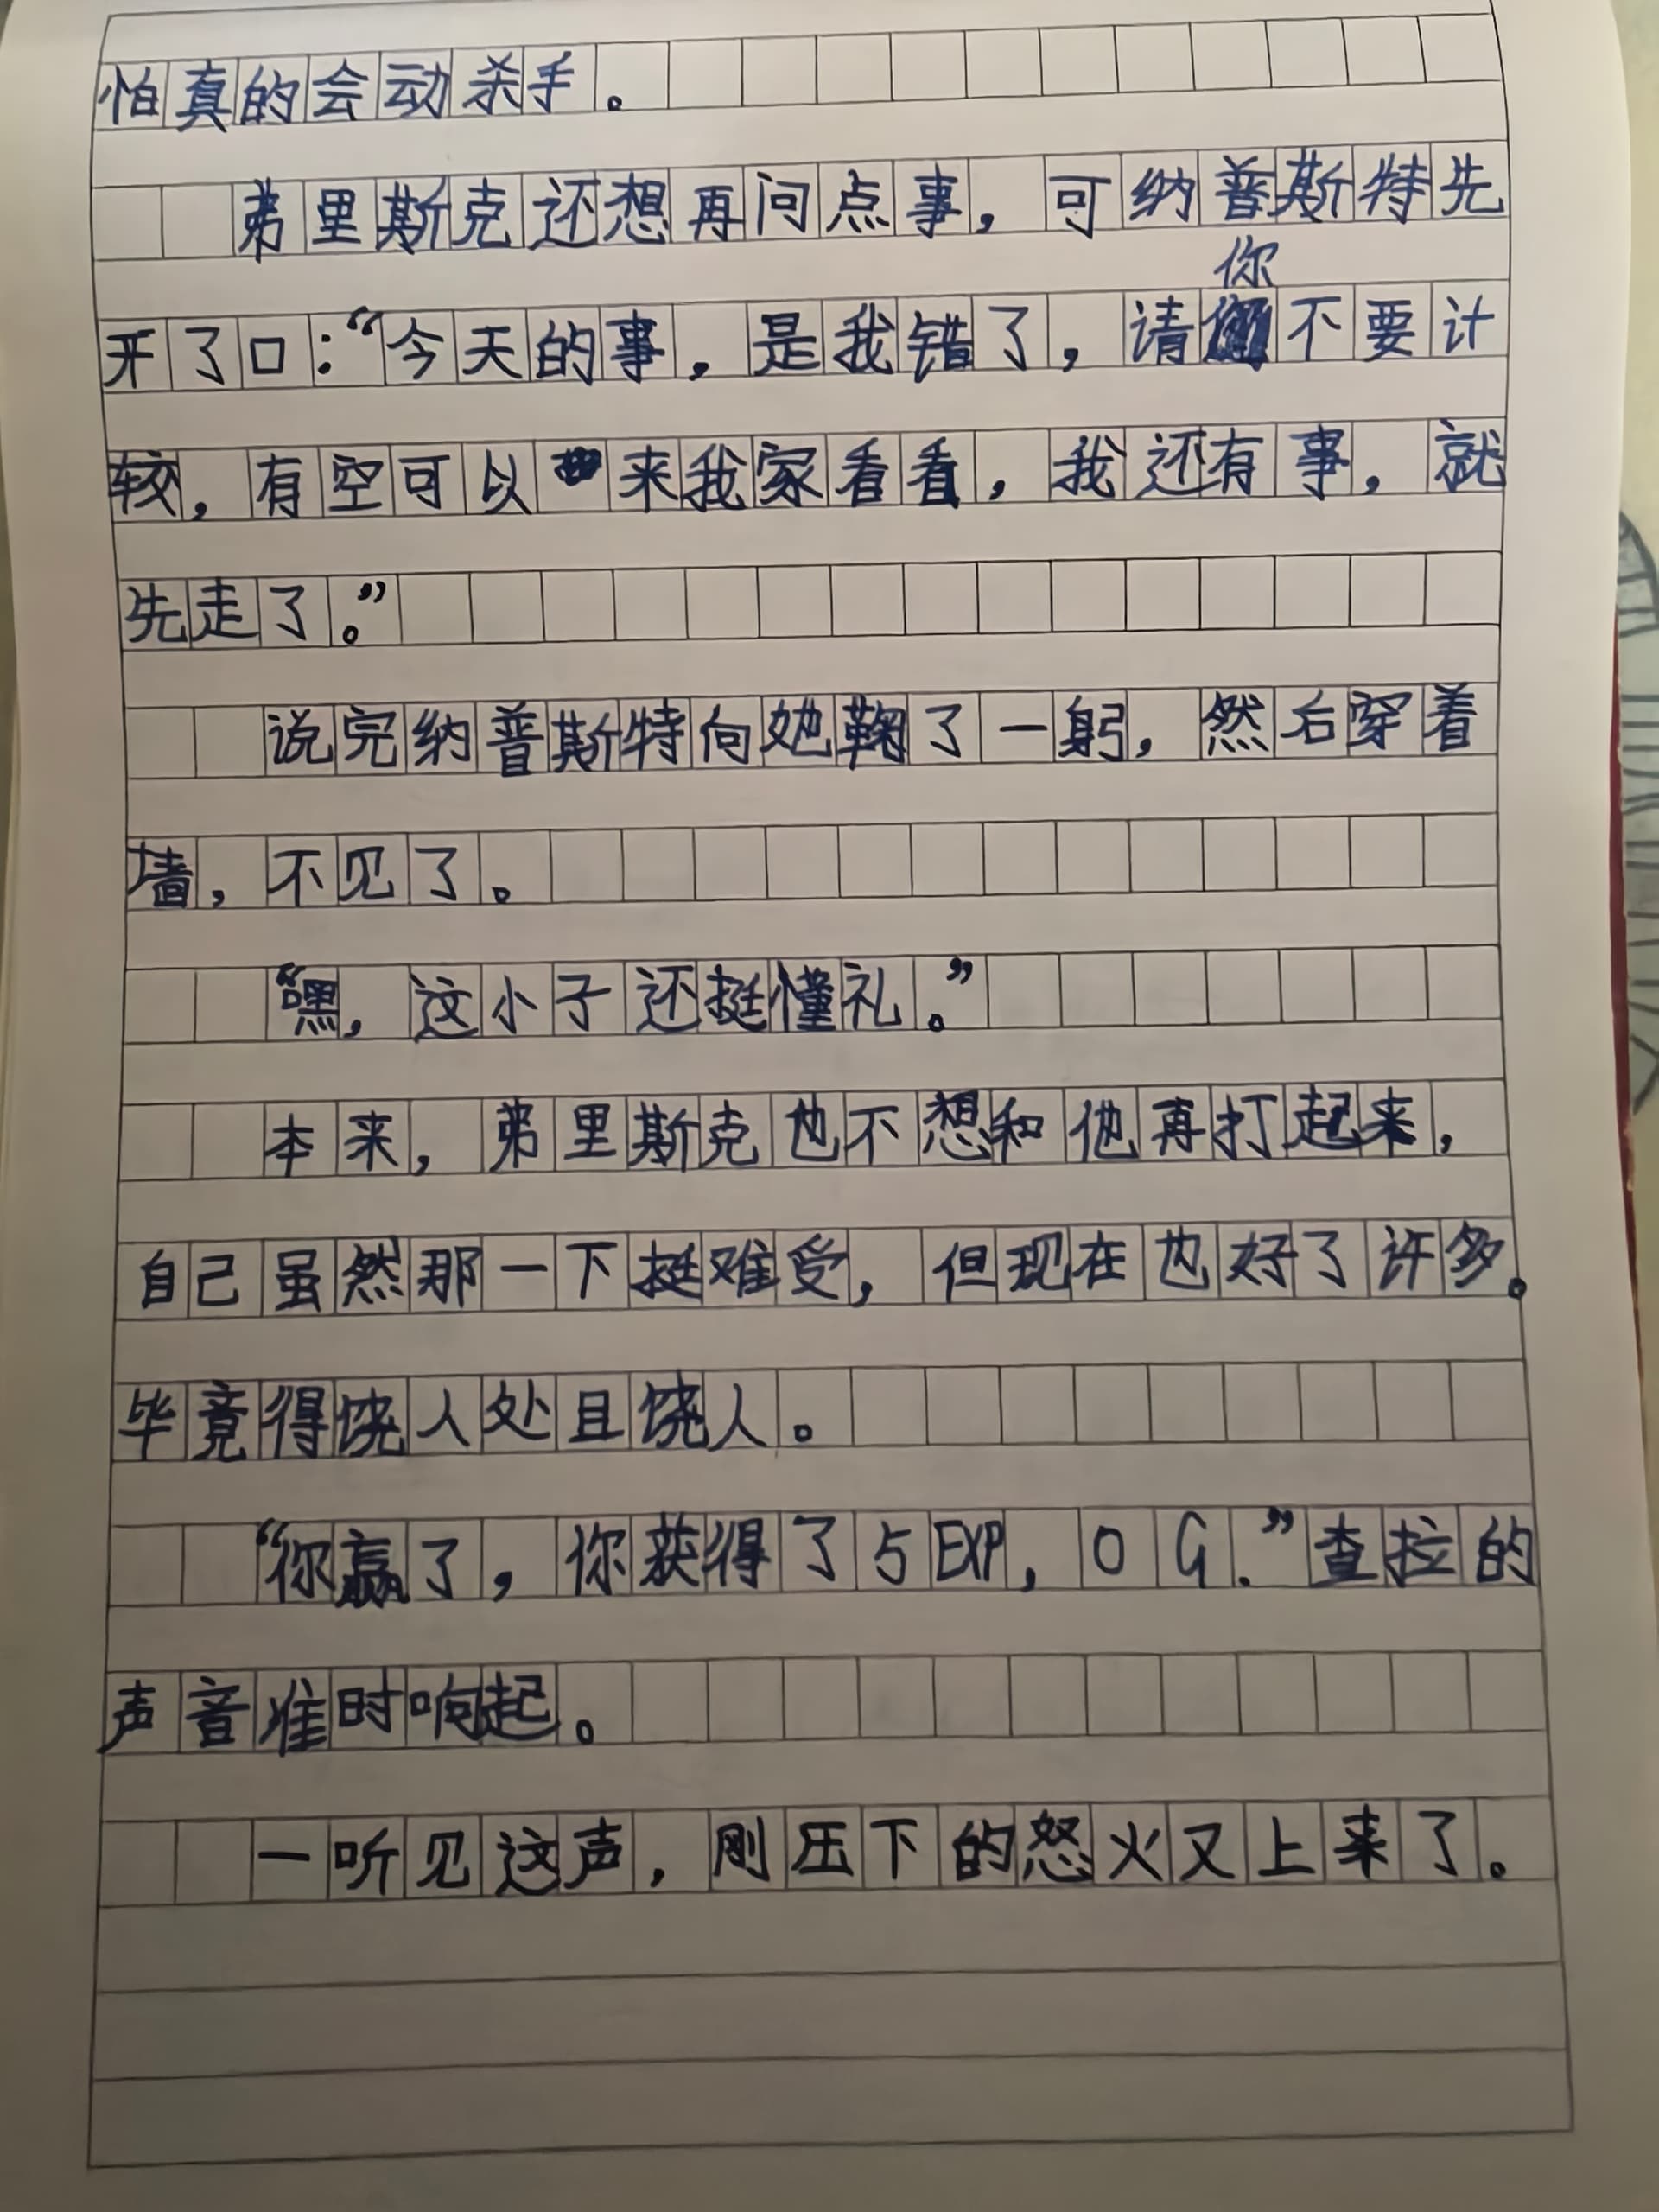 怕真的会动杀手。
弗里斯克还想再问点事，可纳普斯特先
开了口：“今天的事，是我错了，请你不要计
较，有空可以来我家看看，我还有事，就
先走了。”
说完纳普斯特向她鞠了一躬，然后穿着
墙，不见了。
“嘿，这小子还挺懂礼。”
本来，弗里斯克也不想和他再打起来，
自己虽然那一下挺难受，但现在也好了许多。
毕竟得饶人处且饶人。
“你赢了，你获得了5EXP，0G.”查拉的
声音准时响起。
一听见这声，刚压下的怒火又上来了。